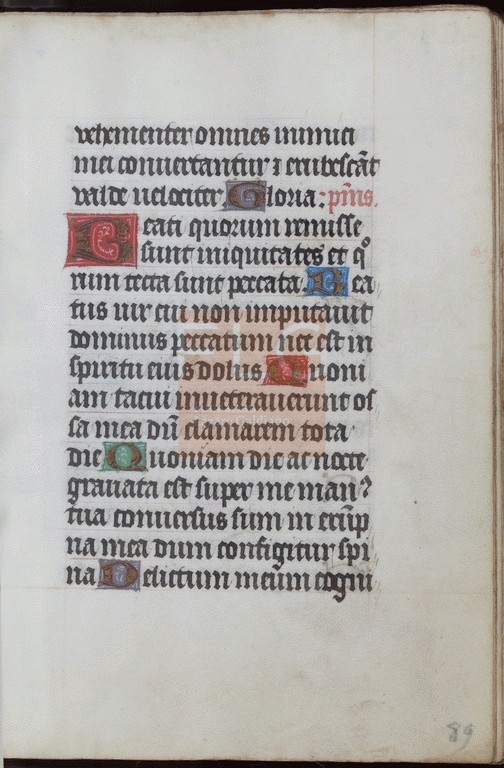 vehementer omnes inimici
mei convertantur ⁊ erubescāt
valde velociter. Gloria: p̄us.
Beati quorum remisse
sunt iniquitates et qͦ
rum tecta sunt peccata. Bea
tus vir cui non imputavit
dominus peccatum nec est in
spiritu eius dolus Quoni
am tacui inveteraverunt os
sa mea dū clamarem tota
die Quoniam die ac nocte
gravata est super me man⁹
tua conversus sum in erūp
na mea dum configitur spi
na Delictum meum cogni
89